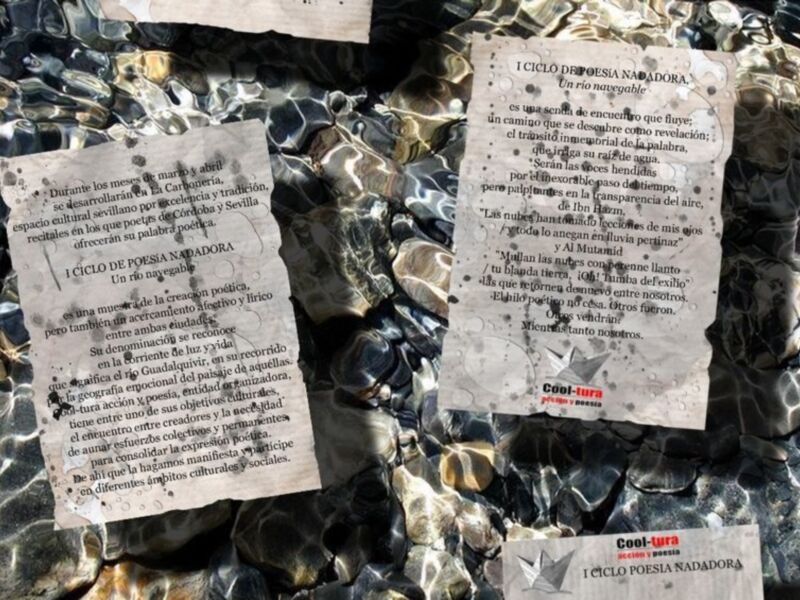 Durante los meses de marzo y abril
se desarrollarán en La Carbonería,
espacio cultural sevillano por excelencia y tradición,
recitales en los que poetas de Córdoba y Sevilla
ofrecerán su palabra poética.
I CICLO DE POESÍA NADADORA
Un río navegable
es una muestra de la creación poética,
pero también un acercamiento afectivo y lírico
entre ambas ciudades.
Su denominación se reconoce
en la corriente de luz y vida
que significa el río Guadalquivir, en su recorrido
por la geografía emocional del paisaje de aquéllas.
Cool-tura acción y poesía, entidad organizadora,
tiene entre uno de sus objetivos culturales,
el encuentro entre creadores y la necesidad
de aunar esfuerzos colectivos y permanentes
para consolidar la expresión poética.
De ahí que la hagamos manifiesta y partícipe
en diferentes ámbitos culturales y sociales.
I CICLO DE POESÍA NADADORA,
Un río navegable
es una senda de encuentro que fluye;
un camino que se descubre como revelación;
el tránsito inmemorial de la palabra,
que irriga su raíz de agua.
Serán las voces hendidas
por el inexorable paso del tiempo,
pero palpitantes en la transparencia del aire,
de Ibn Hazm,
"Las nubes han tomado lecciones de mis ojos
/ y todo lo anegan en lluvia pertinaz"
y Al Mutamid
"Mullan las nubes con perenne llanto
/ tu blanda tierra, ¡Oh! Tumba del exilio"
las que retornen de nuevo entre nosotros.
El hilo poético no cesa. Otros fueron.
Otros vendrán.
Mientras tanto nosotros.
Cool-tura
acción y poesía
Cool-tura
acción y poesía
I CICLO POESIA NADADORA